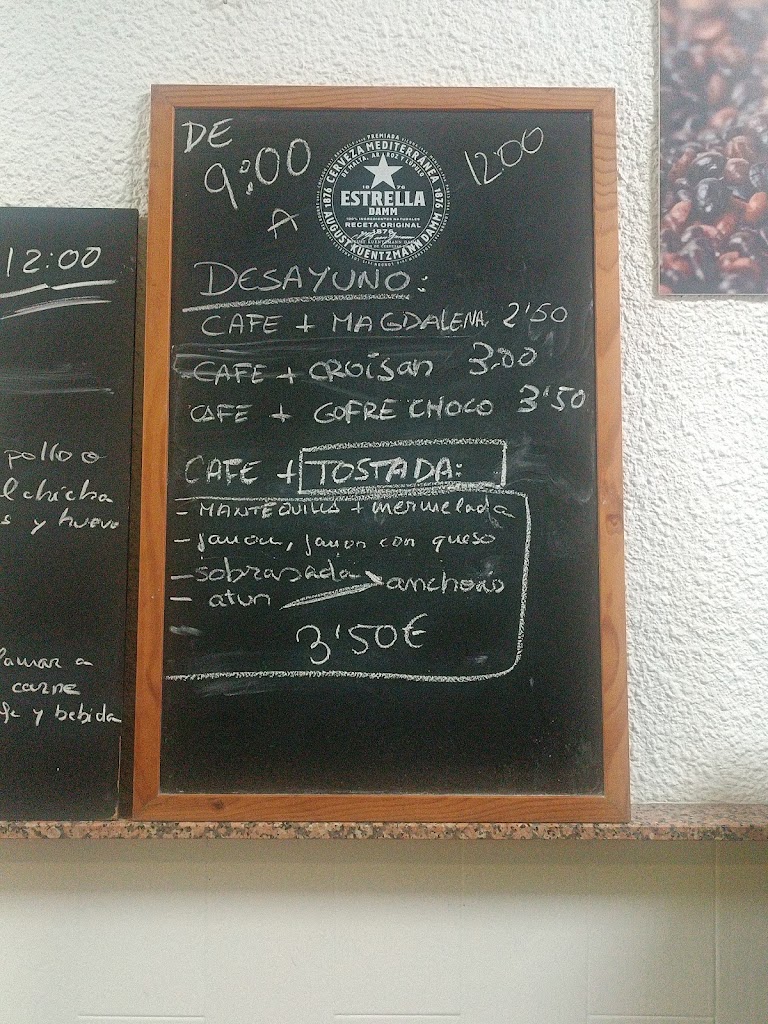 12:00
pollo o
lchicha
s y huevo
lamar a
carne
fe y bebida
DE
9:00
A
12:00
PREMIADA
CERVEZA MEDITERRÁNEA
DE MALTA, ARROZ Y LÚPULO
1876
1876
1876
ESTRELLA
DAMM
100% INGREDIENTES NATURALES
RECETA ORIGINAL
1876
AUGUST KUENTZMANN DAMM
DESAYUNO:
CAFE + MAGDALENA. 2'50
CAFE + CROISAN 3.00
CAFE + GOFRE CHOCO 3'50
CAFE + TOSTADA:
- MANTEQUILLA + mermelada
- jamon, jamon con queso
- sobrasada
- anchoas
- atun
-
3'50€